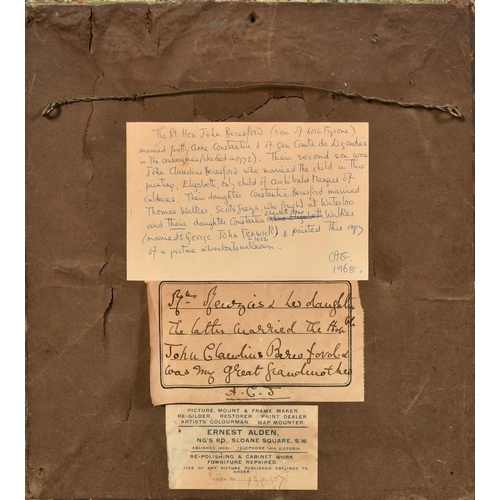 The Rt Hon John Beresford (son of Lord Tyrone)
married firstly Anne Constantia d of Gen Comte de Ligondes
in the Auvergne (she died in 1772). Their second son was
John Claudius Beresford who married the child in this
painting, Elizabeth, only child of Archibald Menzies of
Culdares. Their daughter Constantia Beresford married
Thomas Walker, Scots Greys, who fought at Waterloo
and their daughter Constantia Elizabeth Walker
(married George John Fenwick) painted this copy
1852
of a picture whereabouts unknown.
1968.
Mrs Menzies & her daughter
The latter married The Honble
John Claudius Beresford &
was my great grandmother
PICTURE MOUNT & FRAME MAKER
RE-GILDER. RESTORER PRINT DEALER
ARTISTS' COLOURMAN. MAP MOUNTER
ERNEST ALDEN,
NG'S RD., SLOANE SQUARE, S.W.
RE-POLISHING & CABINET WORK
FURNITURE REPAIRED.
ANY ART PICTURE PUBLISHED OBTAINED TO
ORDER.